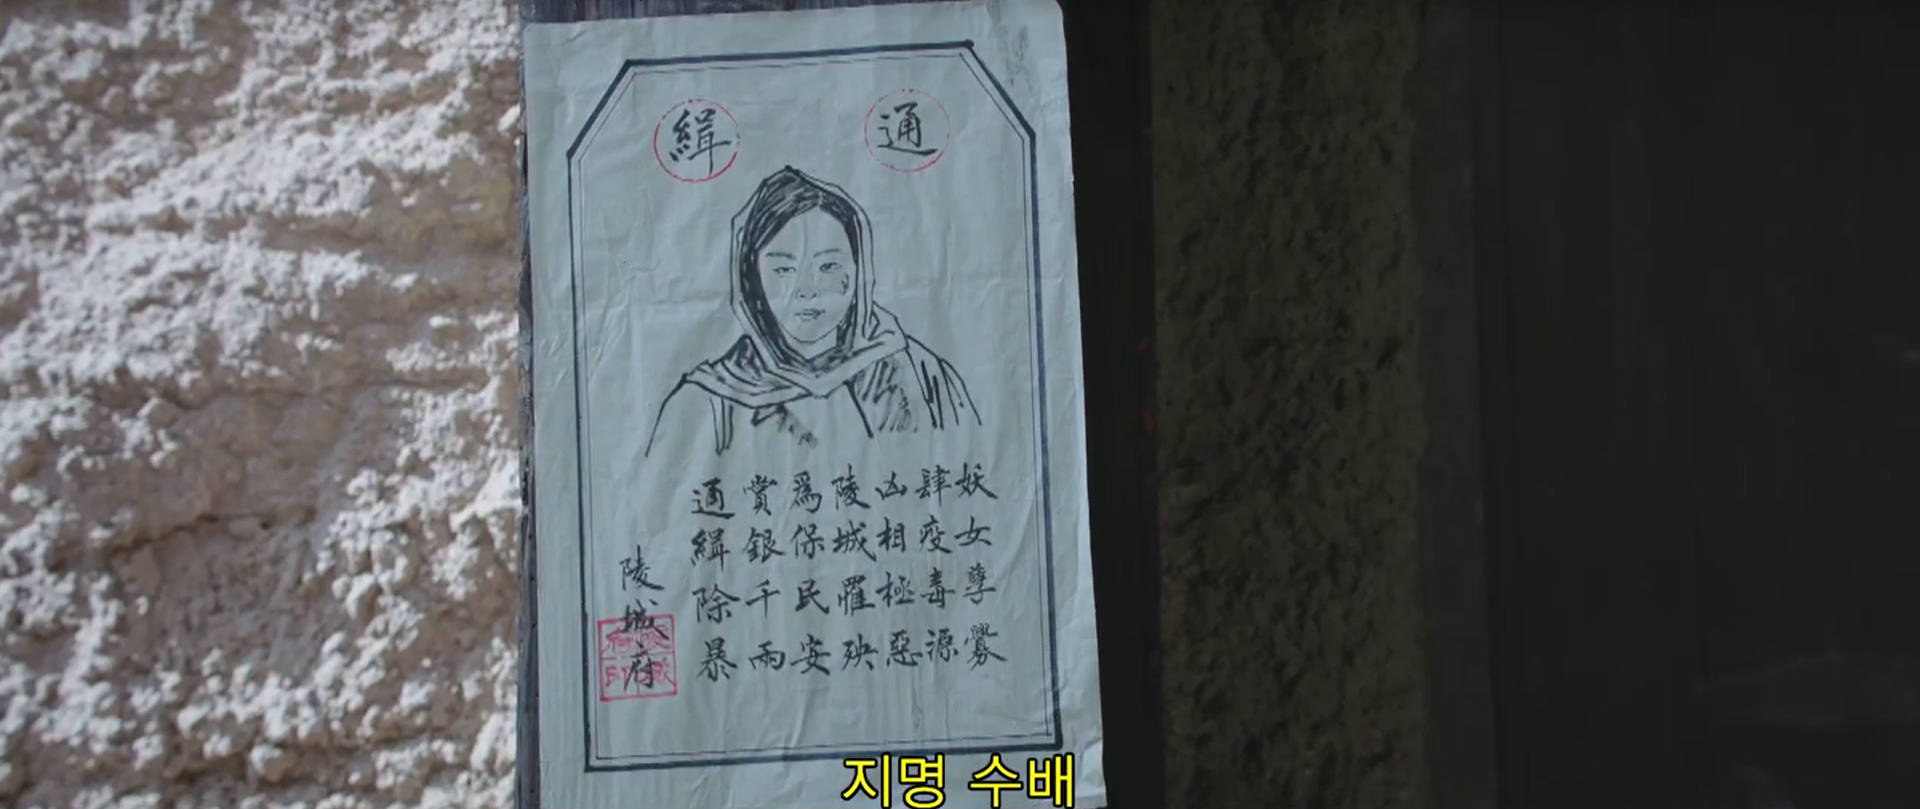 通緝
妖女孽爨
肆疫毒源
凶相極惡
陵城罹殃
爲保民安
賞銀千兩
通緝除暴
陵城府
지명 수배